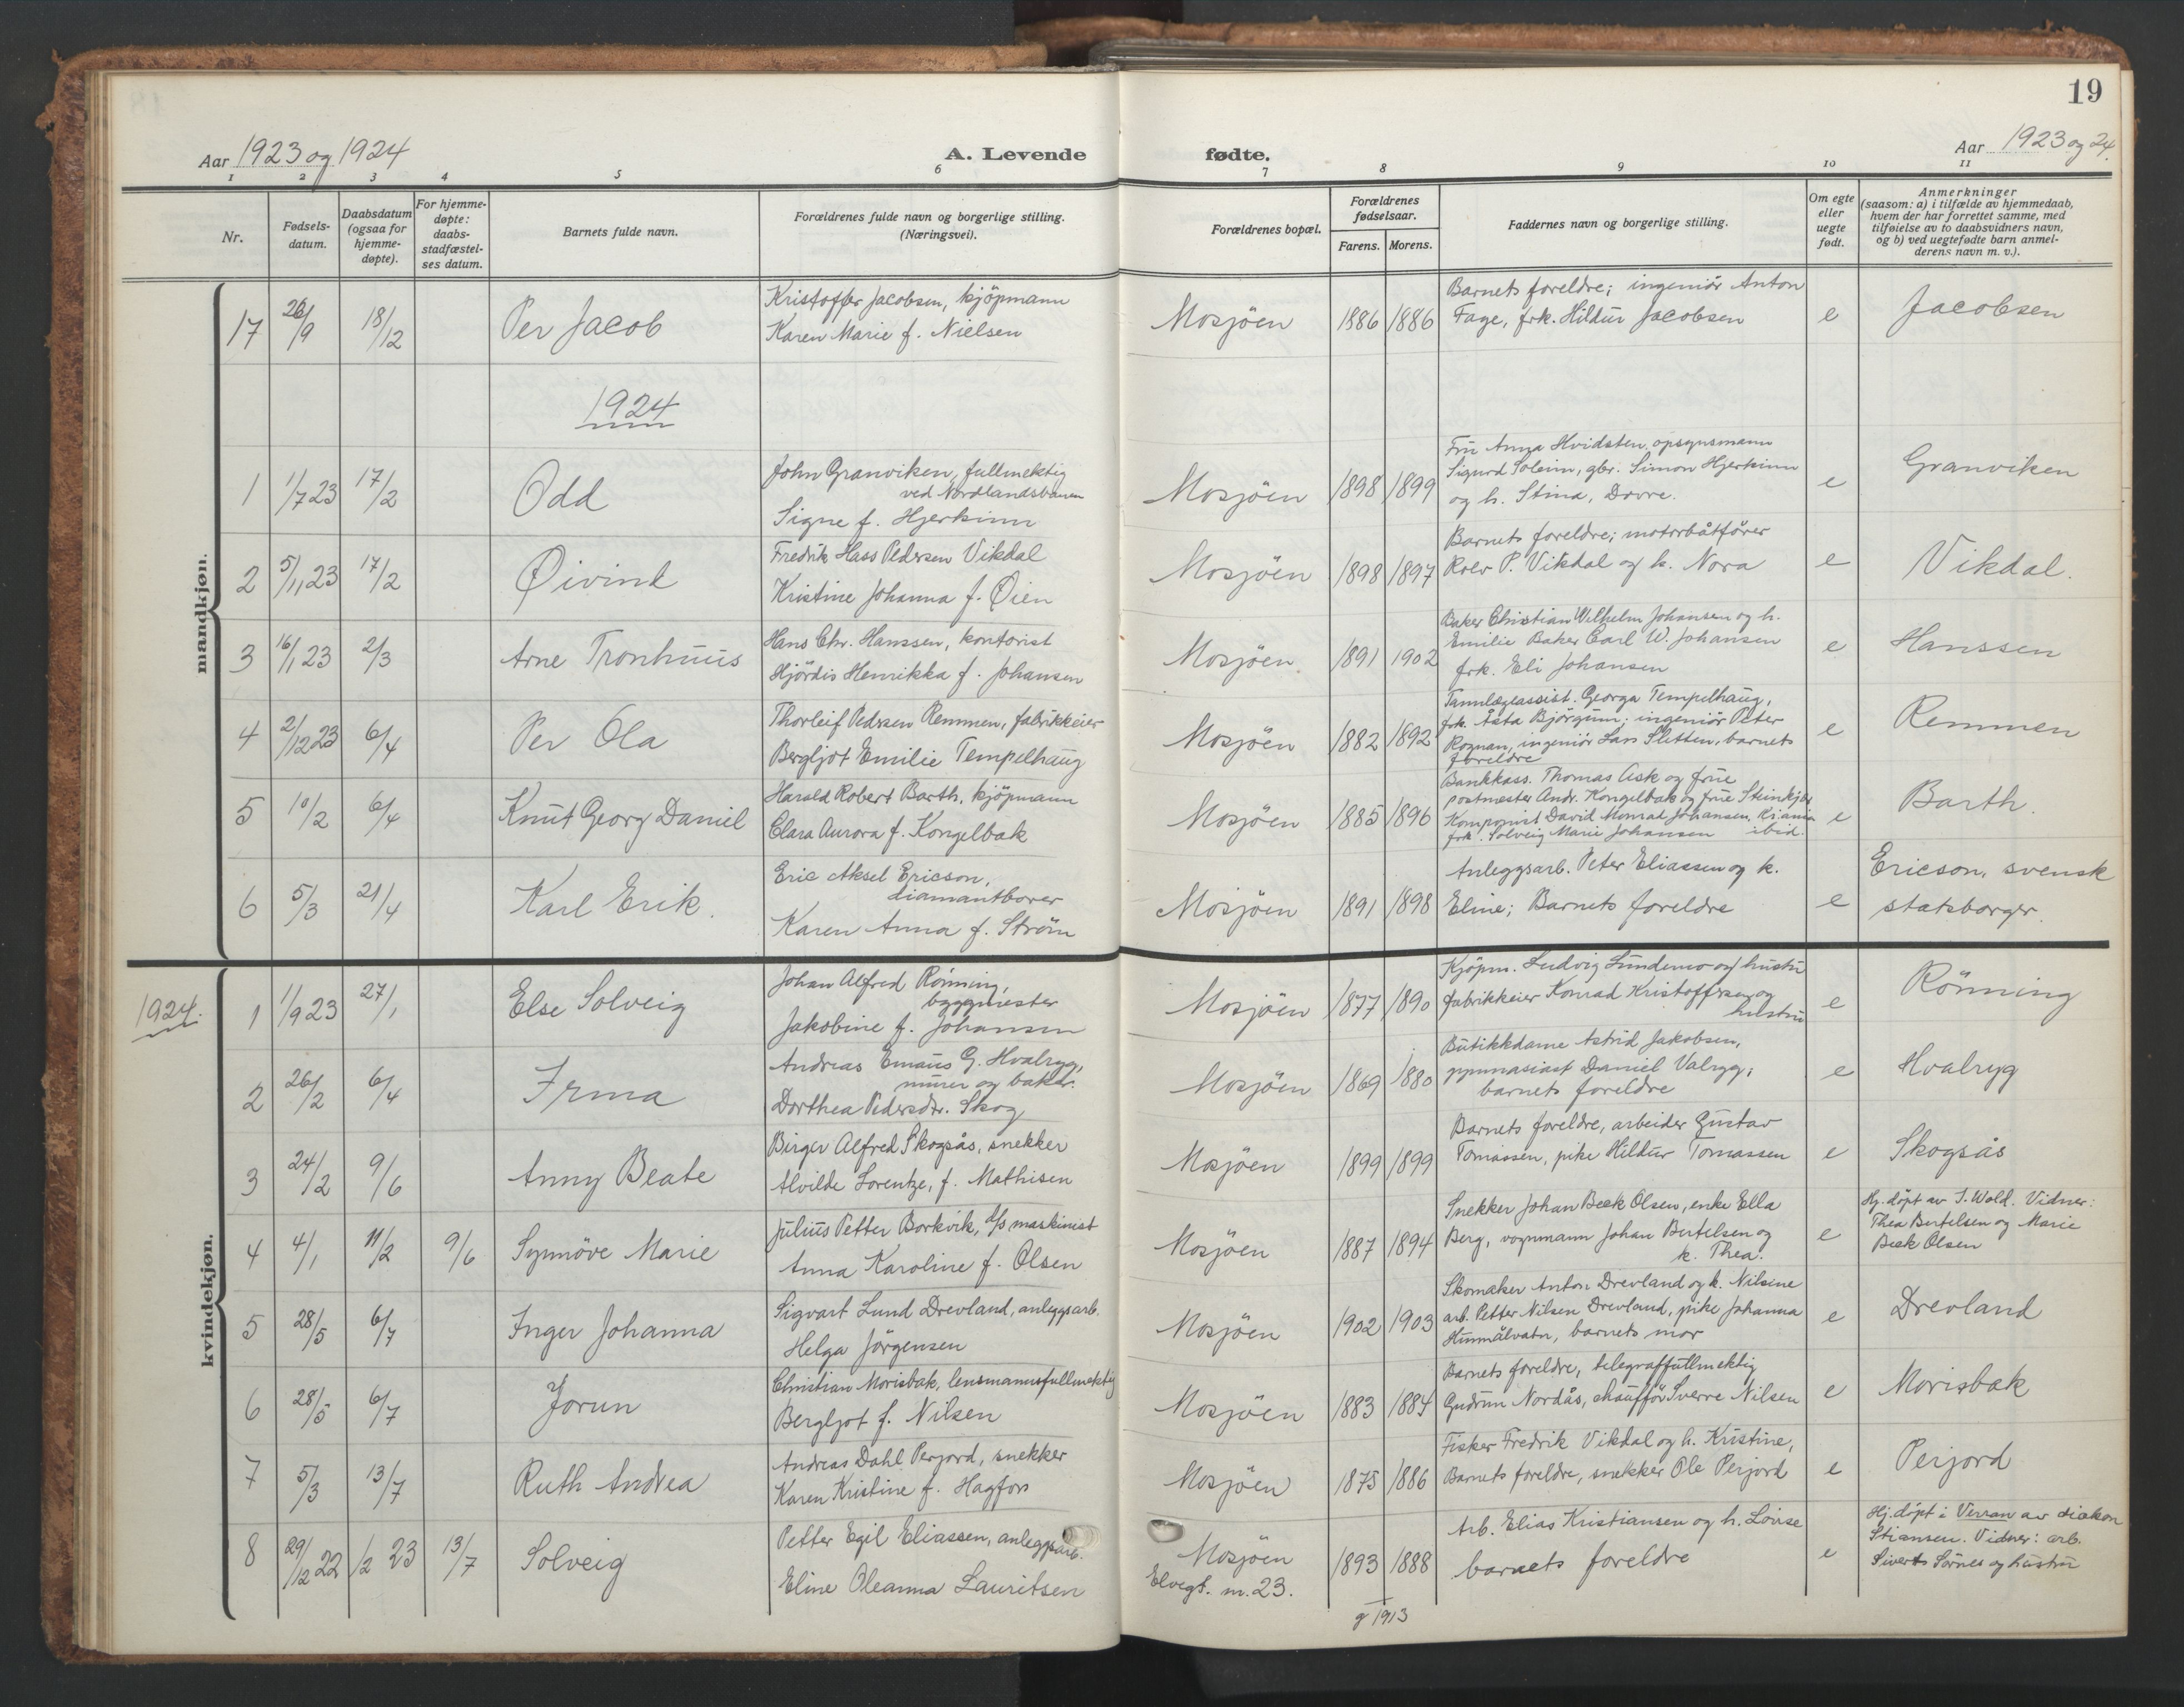 19
Aar 1923 og 1924
A. Levende fødte.
Aar 1923 og 24.
1 2 3 4 5 6 7 8 9 10 11
Nr.
Fødsels-
datum.
Daabsdatum
(ogsaa for
hjemme-
døpte).
For hjemme-
døpte:
daabs-
stadfæstel-
ses datum.
Barnets fulde navn.
Forældrenes fulde navn og borgerlige stilling.
(Næringsvei).
Forældrenes bopæl.
Forældrenes
fødselsaar.
Farens. Morens.
Faddernes navn og borgerlige stilling.
Om egte
eller
uegte
født.
Anmerkninger
(saasom: a) i tilfælde av hjemmedaab,
hvem der har forrettet samme, med
tilføielse av to daabsvidners navn,
og b) ved uegtefødte barn anmel-
derens navn m. v.).
mandkjøn.
17 26/9 18/12 Per Jacob
Kristoffer Jacobsen, kjöpmann
Karen Marie f. Nielsen
Mosjöen 1886 1886
Barnets foreldre; ingeniör Anton
Fage, frk. Hildur Jacobsen
e Jacobsen
1924
1 1/7 23 17/2 Odd
John Granviken, fullmektig
ved Nordlandsbanen
Signe f. Hjerkinn
Mosjöen 1898 1899
Fru Anna Hvidsten, opsynsmann
Sigurd Soleim, gbr. Simon Hjerkinn
og h. Stina, Dovre.
e Granviken
2 5/11 23 17/2 Øivind
Fredrik Hass Pedersen Vikdal
Kristine Johanna f. Øien
Mosjöen 1898 1897
Barnets foreldre; motorbåtfører
Rolv P. Vikdal og h. Nora
e Vikdal.
3 16/1 23 2/3 Arne Tronhuus
Hans Chr. Hanssen, kontorist
Hjördis Henrikka f. Johansen
Mosjöen 1891 1902
Baker Christian Wilhelm Johansen og h.
Emilie Baker Carl W. Johansen
frk. Eli Johansen
e Hanssen
4 2/12 23 6/4 Per Ola
Thorleif Pedersen Remmen, fabrikkeier
Bergljot Emilie Tempelhaug
Mosjöen 1882 1892
Tannlægeassist. Georga Tempelhaug,
frk. Åsta Bjørgum; ingeniör Peter
Rognan, ingeniör Lars Sletten, barnets
foreldre
e Remmen
5 10/2 6/4 Knut Georg Daniel
Harald Robert Barth, kjöpmann
Clara Aurora f. Kongelbak
Mosjöen 1885 1896
Bankkass. Thomas Ask og frue
postmester Andr. Kongelbak og frue Steinkjer
Komponist David Monrad Johansen, Kr.ania
frk. Solveig Marie Johansen ibid.
e Barth.
6 5/3 21/4 Karl Erik.
Eric Aksel Ericson,
diamantborer
Karen Anna f. Ström
Mosjöen 1891 1898
Anleggsarb. Peter Eliassen og k.
Eline; Barnets foreldre
e Ericson, svensk
statsborger.
kvindekjøn.
1924.
1 1/9 23 27/1 Else Solveig
Johan Alfred Rönning,
byggmester
Jakobine f. Johansen
Mosjöen 1877 1890
Kjöpm. Ludvig Lundemo og hustru
fabrikkeier Konrad Kristoffersen og
hustru
e Rönning
2 26/2 6/4 Irma
Andreas Emaus G. Hvalryg,
murer og baker.
Dorthea Pedersdtr. Skog
Mosjöen 1869 1880
Butikkdame Astrid Jakobsen,
gymnasiast Daniel Valryg;
barnets foreldre
e Hvalryg
3 24/2 9/6 Anny Beate
Birger Alfred Skogsås, snekker
Alvilde Lorentze, f. Mathisen
Mosjöen 1899 1899
Barnets foreldre, arbeider Gustav
Tomassen, pike Hildur Tomassen
e Skogsås
4 4/1 11/2 9/6 Synnöve Marie
Julius Petter Borkvik, d/s maskinist
Anna Karoline f. Olsen
Mosjöen 1887 1894
Snekker Johan Beck Olsen, enke Ella
Berg, vognmann Johan Bertelsen og
k. Thea.
e Hj. döpt av I. Wold. Vidner:
Thea Bertelsen og Marie
Beck Olsen
5 28/5 6/7 Inger Johanna
Sigvart Lund Drevland, anleggsarb.
Helga Jörgensen
Mosjöen 1902 1903
Skomaker Anton Drevland og k. Nilsine
arb. Petter Nilsen Drevland, pike Johanna
Hunnålvatn, barnets mor
e Drevland
6 28/5 6/7 Jorun
Christian Morisbak, lensmannsfullmektig
Bergljot f. Nilsen
Mosjöen 1883 1884
Barnets foreldre, telegraffullmektig
Gudrun Nordås, chaufför Sverre Nilsen
e Morisbak
7 5/3 13/7 Ruth Andrea
Andreas Dahl Perjord, snekker
Karen Kristine f. Hagfors
Mosjöen 1875 1886
Fisker Fredrik Vikdal og h. Kristine,
Barnets foreldre, snekker Ole Perjord
e Perjord
8 29/12 22 1/2 23 13/7 Solveig
Petter Egil Eliassen, anleggsarb.
Eline Oleanna Lauritsen
Mosjöen
Elvegt. m. 23.
1893 1888
g 1913
Arb. Elias Kristiansen og h. Lovise
barnets foreldre
e Hj. döpt i Verran av diakon
Stiansen. Vidner: arb.
Sivert Sörnes og hustru